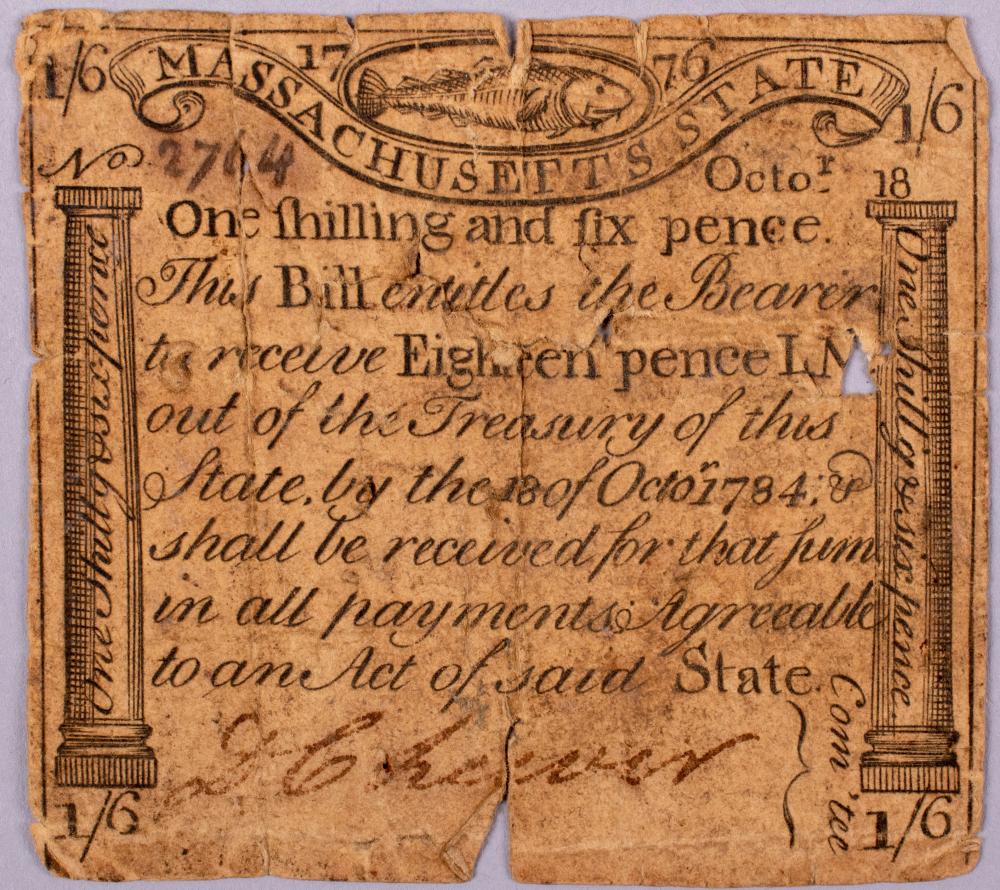 1/6 1776 1/6
MASSACHUSETTS STATE
No. 2764 Octor. 18
One ſhilling and ſix pence.
This Bill entitles the Bearer
to receive Eighteen pence LM
out of the Treasury of this
State, by the 18 of Octor 1784; &
shall be received for that ſum
in all payments Agreeable
to an Act of said State.
D Cheever
Com'tee
One Shilly & six pence
One shilly & six pence
1/6 1/6